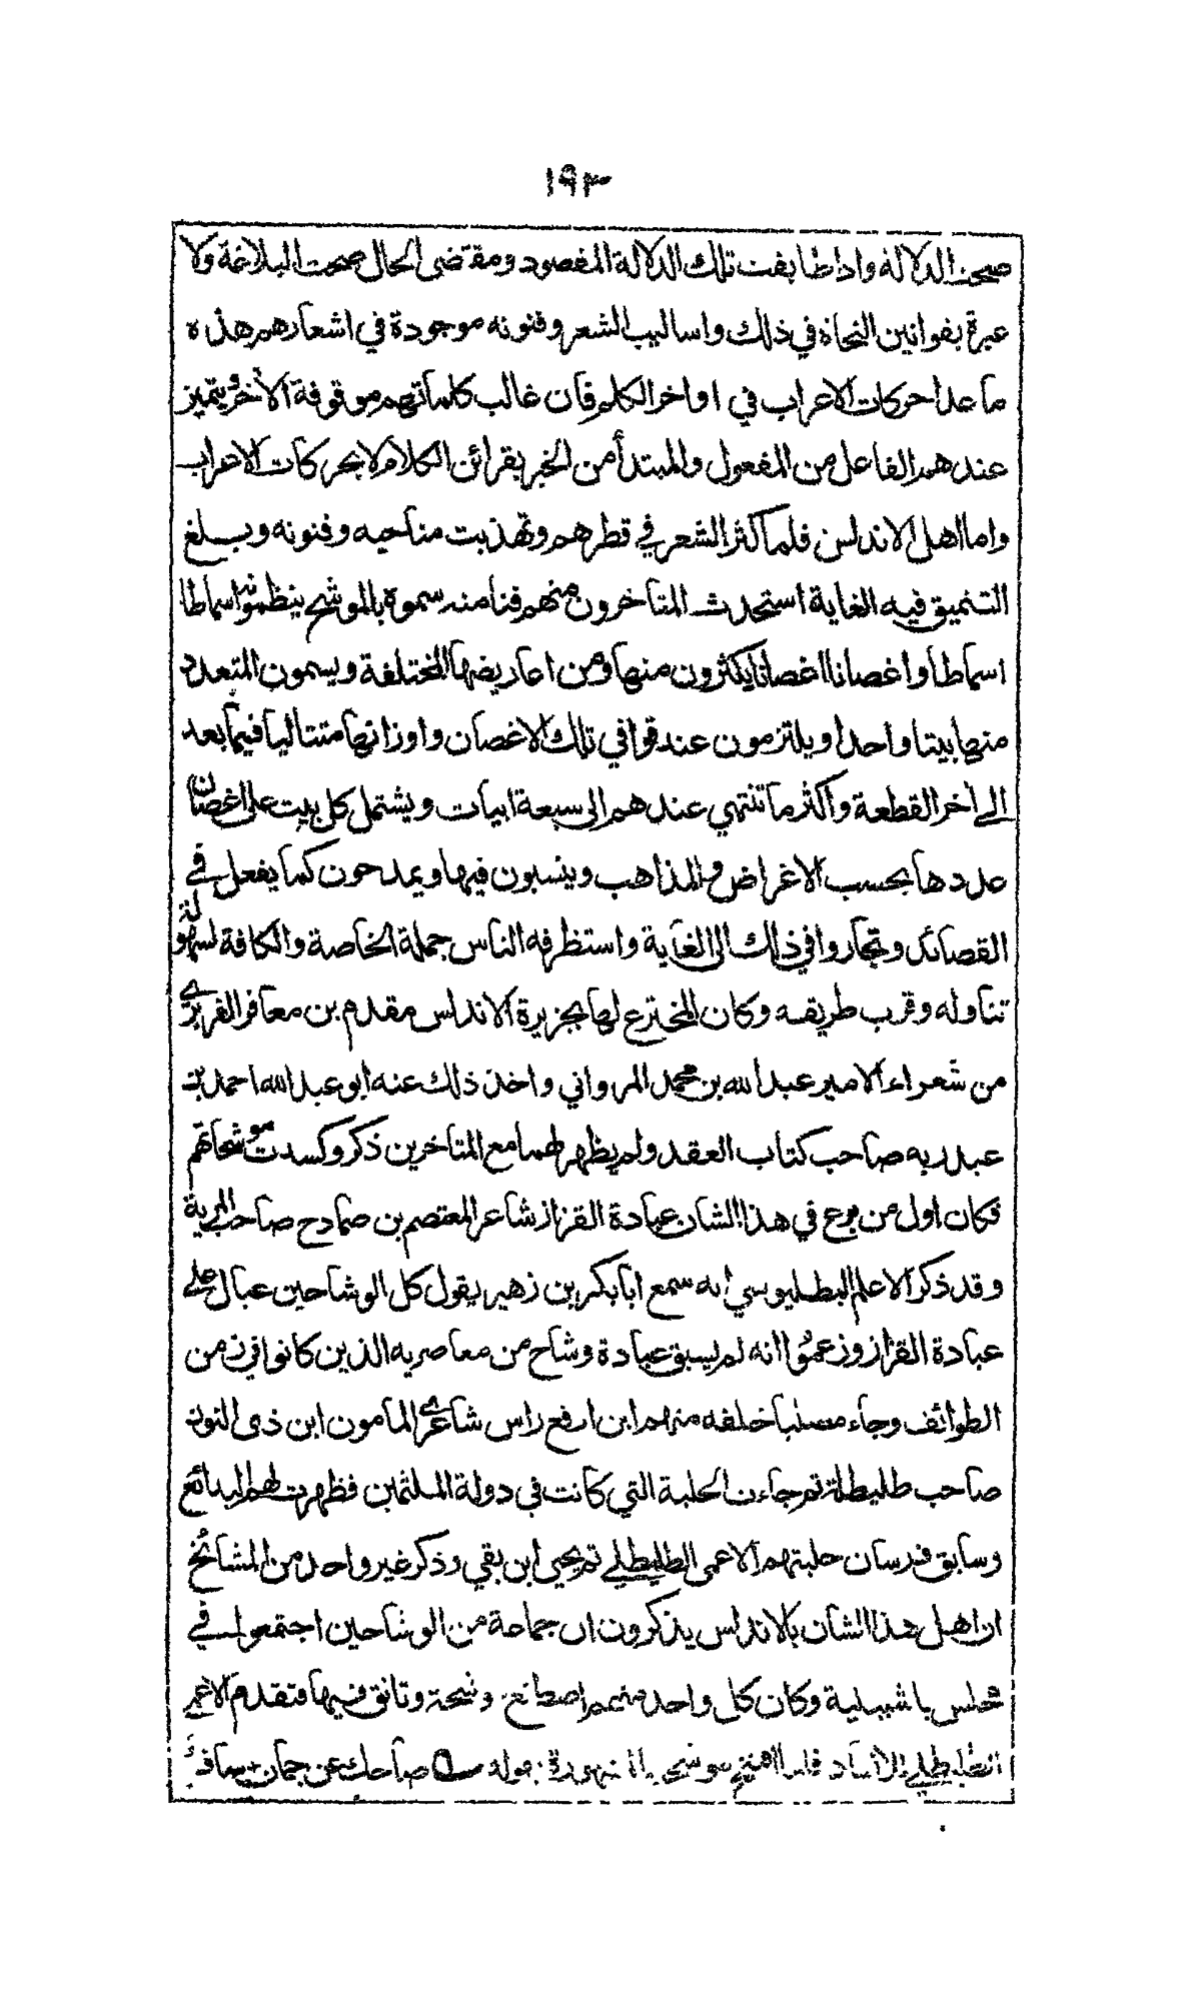 ١٩٣
صحت الدلالة واذا طابقت تلك الدلالة المقصود ومقتضى الحال صحت البلاغة ولا
عبرة بقوانين النحاة في ذلك واساليب الشعر وفنونه موجودة في اشعارهم هذه
ما عدا حركات الاعراب في اواخر الكلم فان غالب كلماتهم موقوفة الآخر ويتميز
عندهم الفاعل من المفعول والمبتدأ من الخبر بقرائن الكلام لا بحركات الاعراب
واما اهل الاندلس فلما كثر الشعر في قطرهم وتهذبت مناحيه وفنونه وبلغ
التنميق فيه الغاية استحدث المتاخرون منهم فنا منه سموه بالموشح ينظمونه اسماطا
اسماطا واغصانا اغصانا يكثرون منها ومن اعاريضها المختلفة ويسمون المتعدد
منها بيتا واحدا ويلتزمون عند قوافي تلك الاغصان واوزانها متتاليا فيما بعد
الى آخر القطعة واكثر ما تنتهي عندهم الى سبعة ابيات ويشتمل كل بيت على اغصان
عددها بحسب الاغراض والمذاهب وينسبون فيها ويمدحون كما يفعل في
القصائد وتجاروا في ذلك الى الغاية واستظرفه الناس جملة الخاصة والكافة لسهولة
تناوله وقرب طريقه وكان المخترع لها بجزيرة الاندلس مقدم بن معافر القريزي
من شعراء الامير عبد الله بن محمد المرواني واخذ ذلك عنه ابو عبد الله احمد بن
عبد ربه صاحب كتاب العقد ولم يظهر لهما مع المتاخرين ذكر وكسدت موشحاتهم
فكان اول من برع في هذا الشان عبادة القزاز شاعر المعتصم بن صمادح صاحب المرية
وقد ذكر الاعلم البطليوسي انه سمع ابا بكر بن زهير يقول كل الوشاحين عيال على
عبادة القزاز وزعموا انه لم يسبق عبادة وشاح من معاصريه الذين كانوا في زمن
الطوائف وجاء مصليا خلفه منهم ابن ارفع راس شاعر المامون ابن ذى النون
صاحب طليطلة ثم جاءت الحلبة التي كانت في دولة الملثمين فظهرت لهم البدائع
وسابق فرسان حلبتهم الاعمى الطليطلي ثم يحيى ابن بقي وذكر غير واحد من المشائخ
ان اهل هذا الشان بالاندلس يذكرون ان جماعة من الوشاحين اجتمعوا في
مجلس باشبيلية وكان كل واحد منهم اصطنع وشحة وتانق فيها فتقدم الاعمى
الطليطلي للانشاد فلما افتتح موشحته المشهورة بقوله صاحك عن جمان سافر